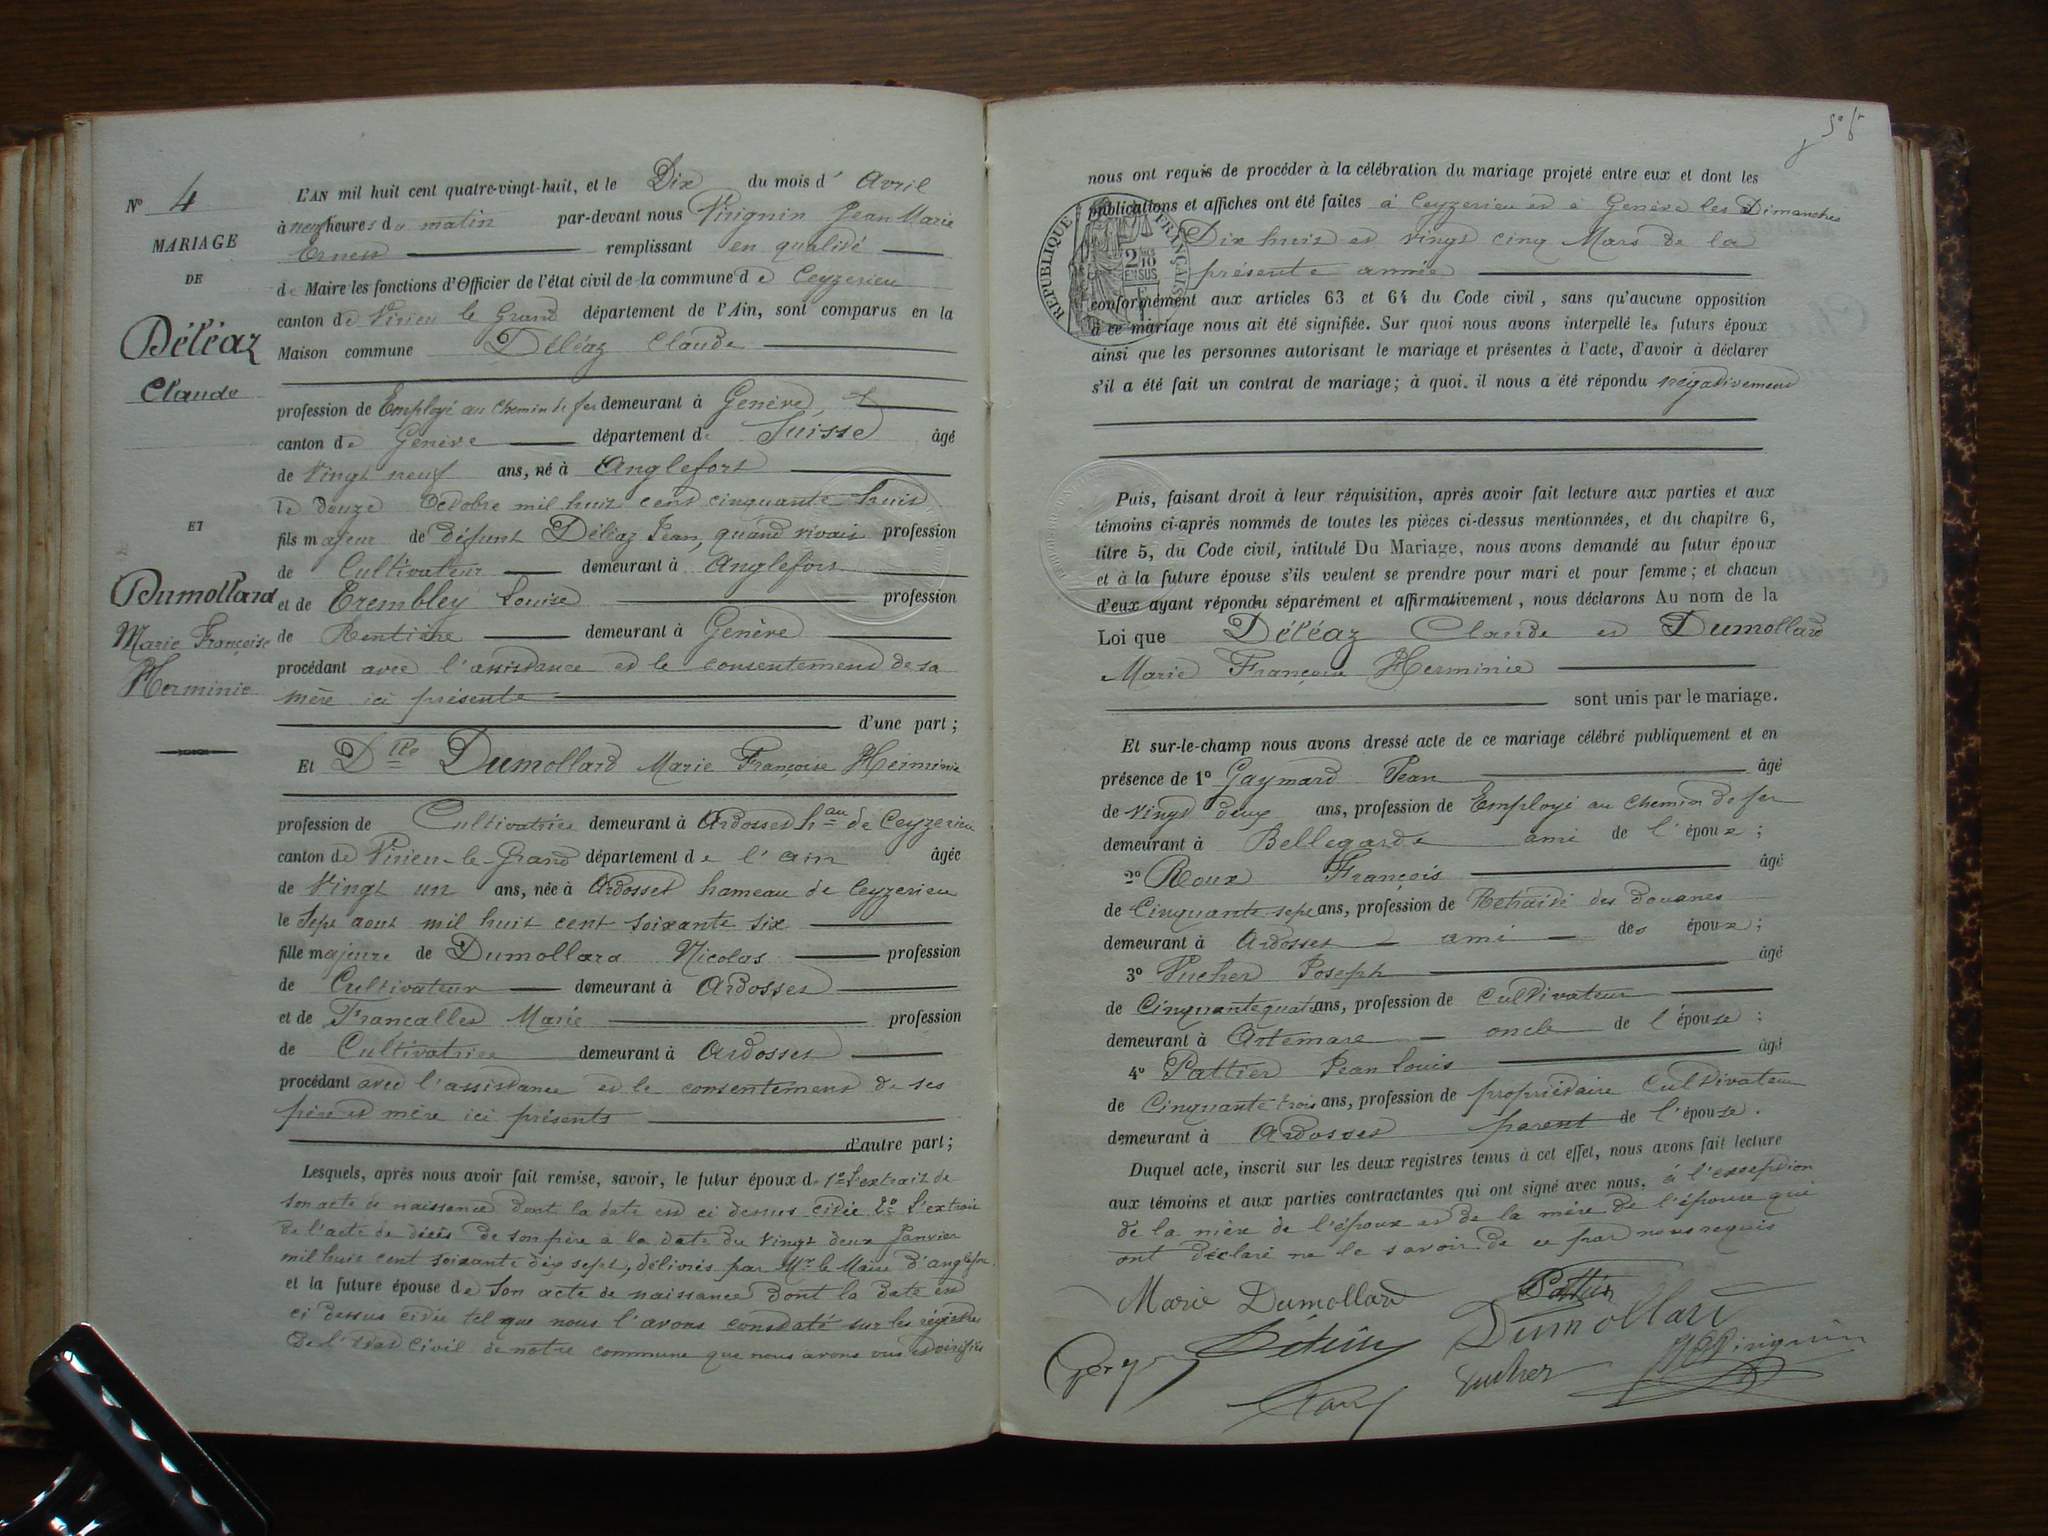 N° 4
MARIAGE
DE
Déléaz
Claude
ET
Dumollard
Marie Françoise
Herminie
L'AN mil huit cent quatre-vingt-huit, et le Dix du mois d' Avril
à neuf heures du matin par-devant nous Virignin Jean Marie
Ernest remplissant en qualité
de Maire les fonctions d'Officier de l'état civil de la commune de Ceyzerieu
canton de Virieu le Grand département de l'Ain, sont comparus en la
Maison commune Déléaz Claude
profession de Employé au Chemin de fer demeurant à Genève
canton de Genève département de Suisse âgé
de Vingt neuf ans, né à Anglefort
le douze Octobre mil huit cent cinquante huit
fils majeur de défunt Déléaz Jean, quand vivait profession
de Cultivateur demeurant à Anglefort
et de Trembley Louise profession
de Rentière demeurant à Genève
procédant avec l'assistance et le consentement de sa
mère ici présente
d'une part ;
Et Dlle Dumollard Marie Françoise Herminie
profession de Cultivatrice demeurant à Ardosset hau de Ceyzerieu
canton de Virieu-le-Grand département de l'ain âgée
de Vingt un ans, née à Ardosset hameau de Ceyzerieu
le Sept aout mil huit cent soixante six
fille majeure de Dumollard Nicolas profession
de Cultivateur demeurant à Ardosset
et de Francallet Marie profession
de Cultivatrice demeurant à Ardosset
procédant avec l'assistance et le consentement de ses
père et mère ici présents
d'autre part ;
Lesquels, après nous avoir fait remise, savoir, le futur époux de 1° L'extrait de
son acte de naissance dont la date est ci dessus citée 2° L'extrait
de l'acte de décès de son père à la date du vingt deux Janvier
mil huit cent soixante dix sept, délivrés par Mr le Maire d'anglefort
et la future épouse de Son acte de naissance dont la date est
ci dessus citée tel que nous l'avons constaté sur les régistres
de l'Etat Civil de notre commune que nous avons vus et vérifiés
nous ont requis de procéder à la célébration du mariage projeté entre eux et dont les
publications et affiches ont été faites à Ceyzerieu et à Genève les Dimanches
Dix huit et vingt cinq Mars de la
présente année
conformément aux articles 63 et 64 du Code civil, sans qu'aucune opposition
à ce mariage nous ait été signifiée. Sur quoi nous avons interpellé les futurs époux
ainsi que les personnes autorisant le mariage et présentes à l'acte, d'avoir à déclarer
s'il a été fait un contrat de mariage ; à quoi il nous a été répondu négativement
REPUBLIQUE FRANÇAISE
2/10
EN SUS
Puis, faisant droit à leur réquisition, après avoir fait lecture aux parties et aux
témoins ci-après nommés de toutes les pièces ci-dessus mentionnées, et du chapitre 6,
titre 5, du Code civil, intitulé Du Mariage, nous avons demandé au futur époux
et à la future épouse s'ils veulent se prendre pour mari et pour femme ; et chacun
d'eux ayant répondu séparément et affirmativement, nous déclarons Au nom de la
Loi que Déléaz Claude et Dumollard
Marie Françoise Herminie
sont unis par le mariage.
Et sur-le-champ nous avons dressé acte de ce mariage célébré publiquement et en
présence de 1° Gaymard Jean âgé
de Vingt deux ans, profession de Employé au Chemin de fer
demeurant à Bellegarde ami de l'époux ;
2° Roux François âgé
de Cinquante sept ans, profession de Retraité des Douanes
demeurant à Ardosset ami des époux ;
3° Vucher Joseph âgé
de Cinquante quatre ans, profession de Cultivateur
demeurant à Artemare oncle de l'épouse ;
4° Pattier Jean Louis âgé
de Cinquante trois ans, profession de propriétaire Cultivateur
demeurant à Ardosset parent de l'épouse.
Duquel acte, inscrit sur les deux registres tenus à cet effet, nous avons fait lecture
aux témoins et aux parties contractantes qui ont signé avec nous, à l'exception
de la mère de l'époux et de la mère de l'épouse qui
ont déclaré ne le savoir de ce par nous requis
Marie Dumollard
Pattier
Dumollard
Vucher
Virignin